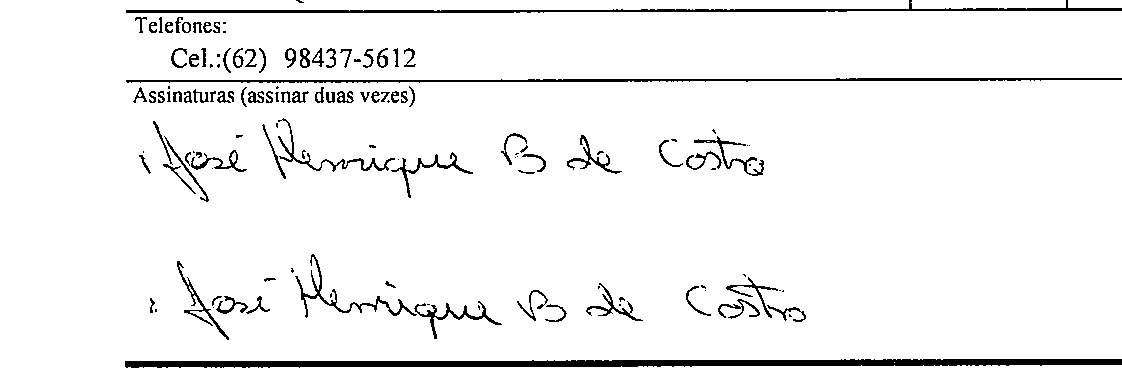 Telefones:
Cel.:(62) 98437-5612
Assinaturas (assinar duas vezes)
José Henrique B de Castro
José Henrique B de Castro